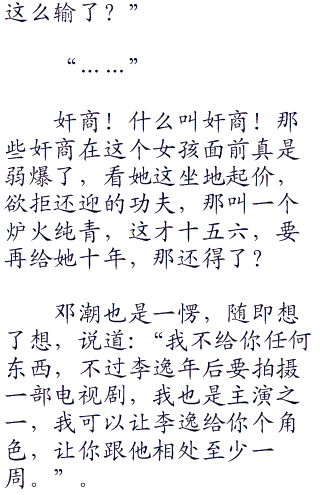 这么输了？”
“……”
奸商！什么叫奸商！那
些奸商在这个女孩面前真是
弱爆了，看她这坐地起价，
欲拒还迎的功夫，那叫一个
炉火纯青，这才十五六，要
再给她十年，那还得了？
邓潮也是一愣，随即想
了想，说道：“我不给你任何
东西，不过李逸年后要拍摄
一部电视剧，我也是主演之
一，我可以让李逸给你个角
色，让你跟他相处至少一
周。”。